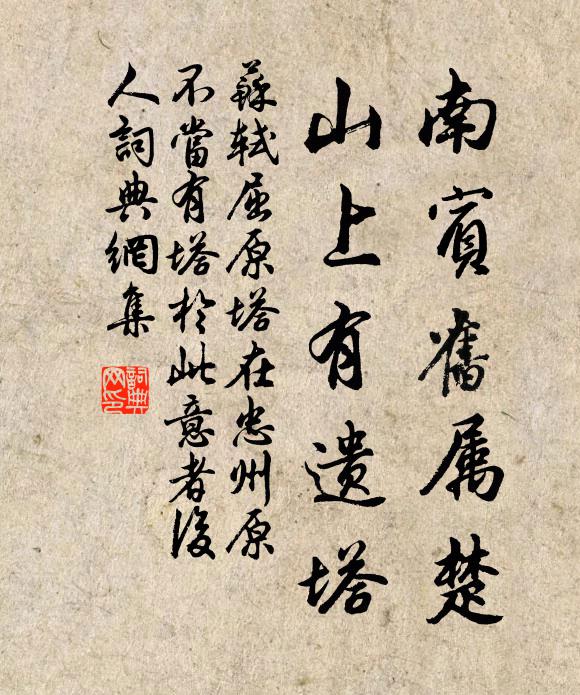 南賓舊属楚
山上有遺塔
蘇軾屈原塔在忠州原
不當有塔於此意者後
人詞典網集
詞典网印